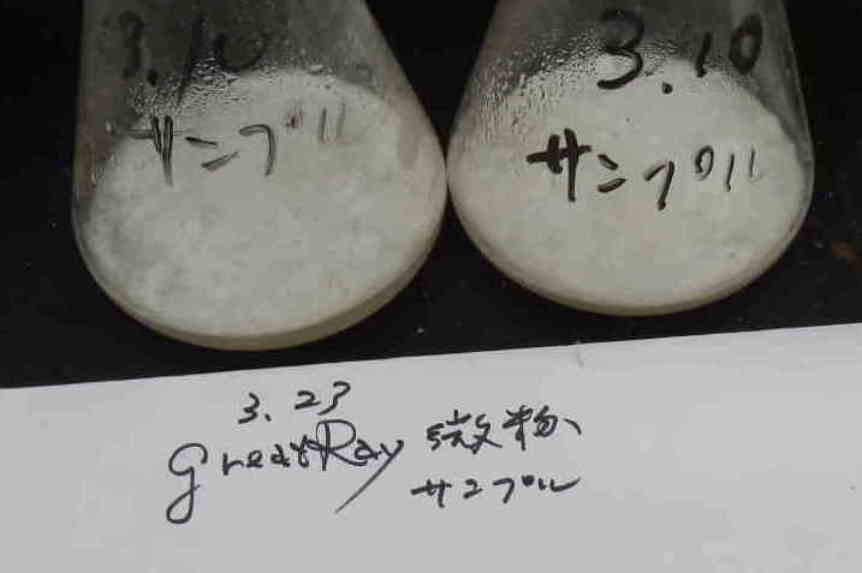 3.10
サンプル
3.10
サンプル
3.23
GreatRay 微粉
サンプル